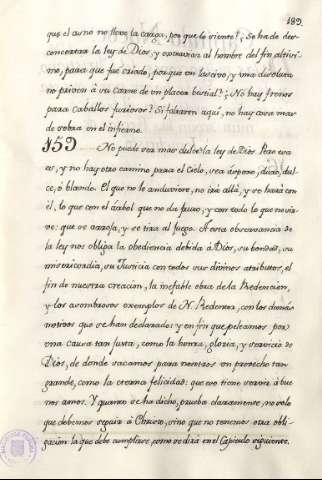 189.
que el asno no lleve la carga, porque lo siente? Se ha de des-
concertar la ley de Dios, y extraviar al hombre del fin altísi-
mo, para que fué criado, porque un lascivo, y una disoluta
no priven à su carne de un placer bestial? ¿No hay frenos
para caballos furiosos? Si faltaren aquí, no hay cosa mas
de sobra en el infierno.
159 No puede ser mas dulce la ley de Dios. Pero sea
as, y no hay otro camino para el Cielo, sea áspero, duro, dul-
ce, ó blando. El que no le anduviere, no irá allá, y se hará con
èl, lo que con el árbol que no da fruto, y con todo lo que no sir-
ve: que se arroja, y se tira al fuego. A esta observancia de
la ley nos obliga la obediencia debida á Dios, su bondad, su
misericordia, su Justicia con todos sus divinos atributos, el
fin de nuestra creacion, la inefable obra de la Redencion,
y los asombrosos exemplos de N. Redentor, con los demás
motivos que se han declarado; y en fin que peleamos por
una causa tan justa, como la honra, gloria, y servicio de
Dios, de donde sacamos para nosotros un provecho tan
grande, como la eterna felicidad: que eso tiene servir á bue-
nos amos. Y quanto se ha dicho, prueba claramente, no solo
que debemos seguir á Christo, sino que no tenemos otra obli-
gacion la que debe cumplirse, como se dirá en el Capitulo siguiente.